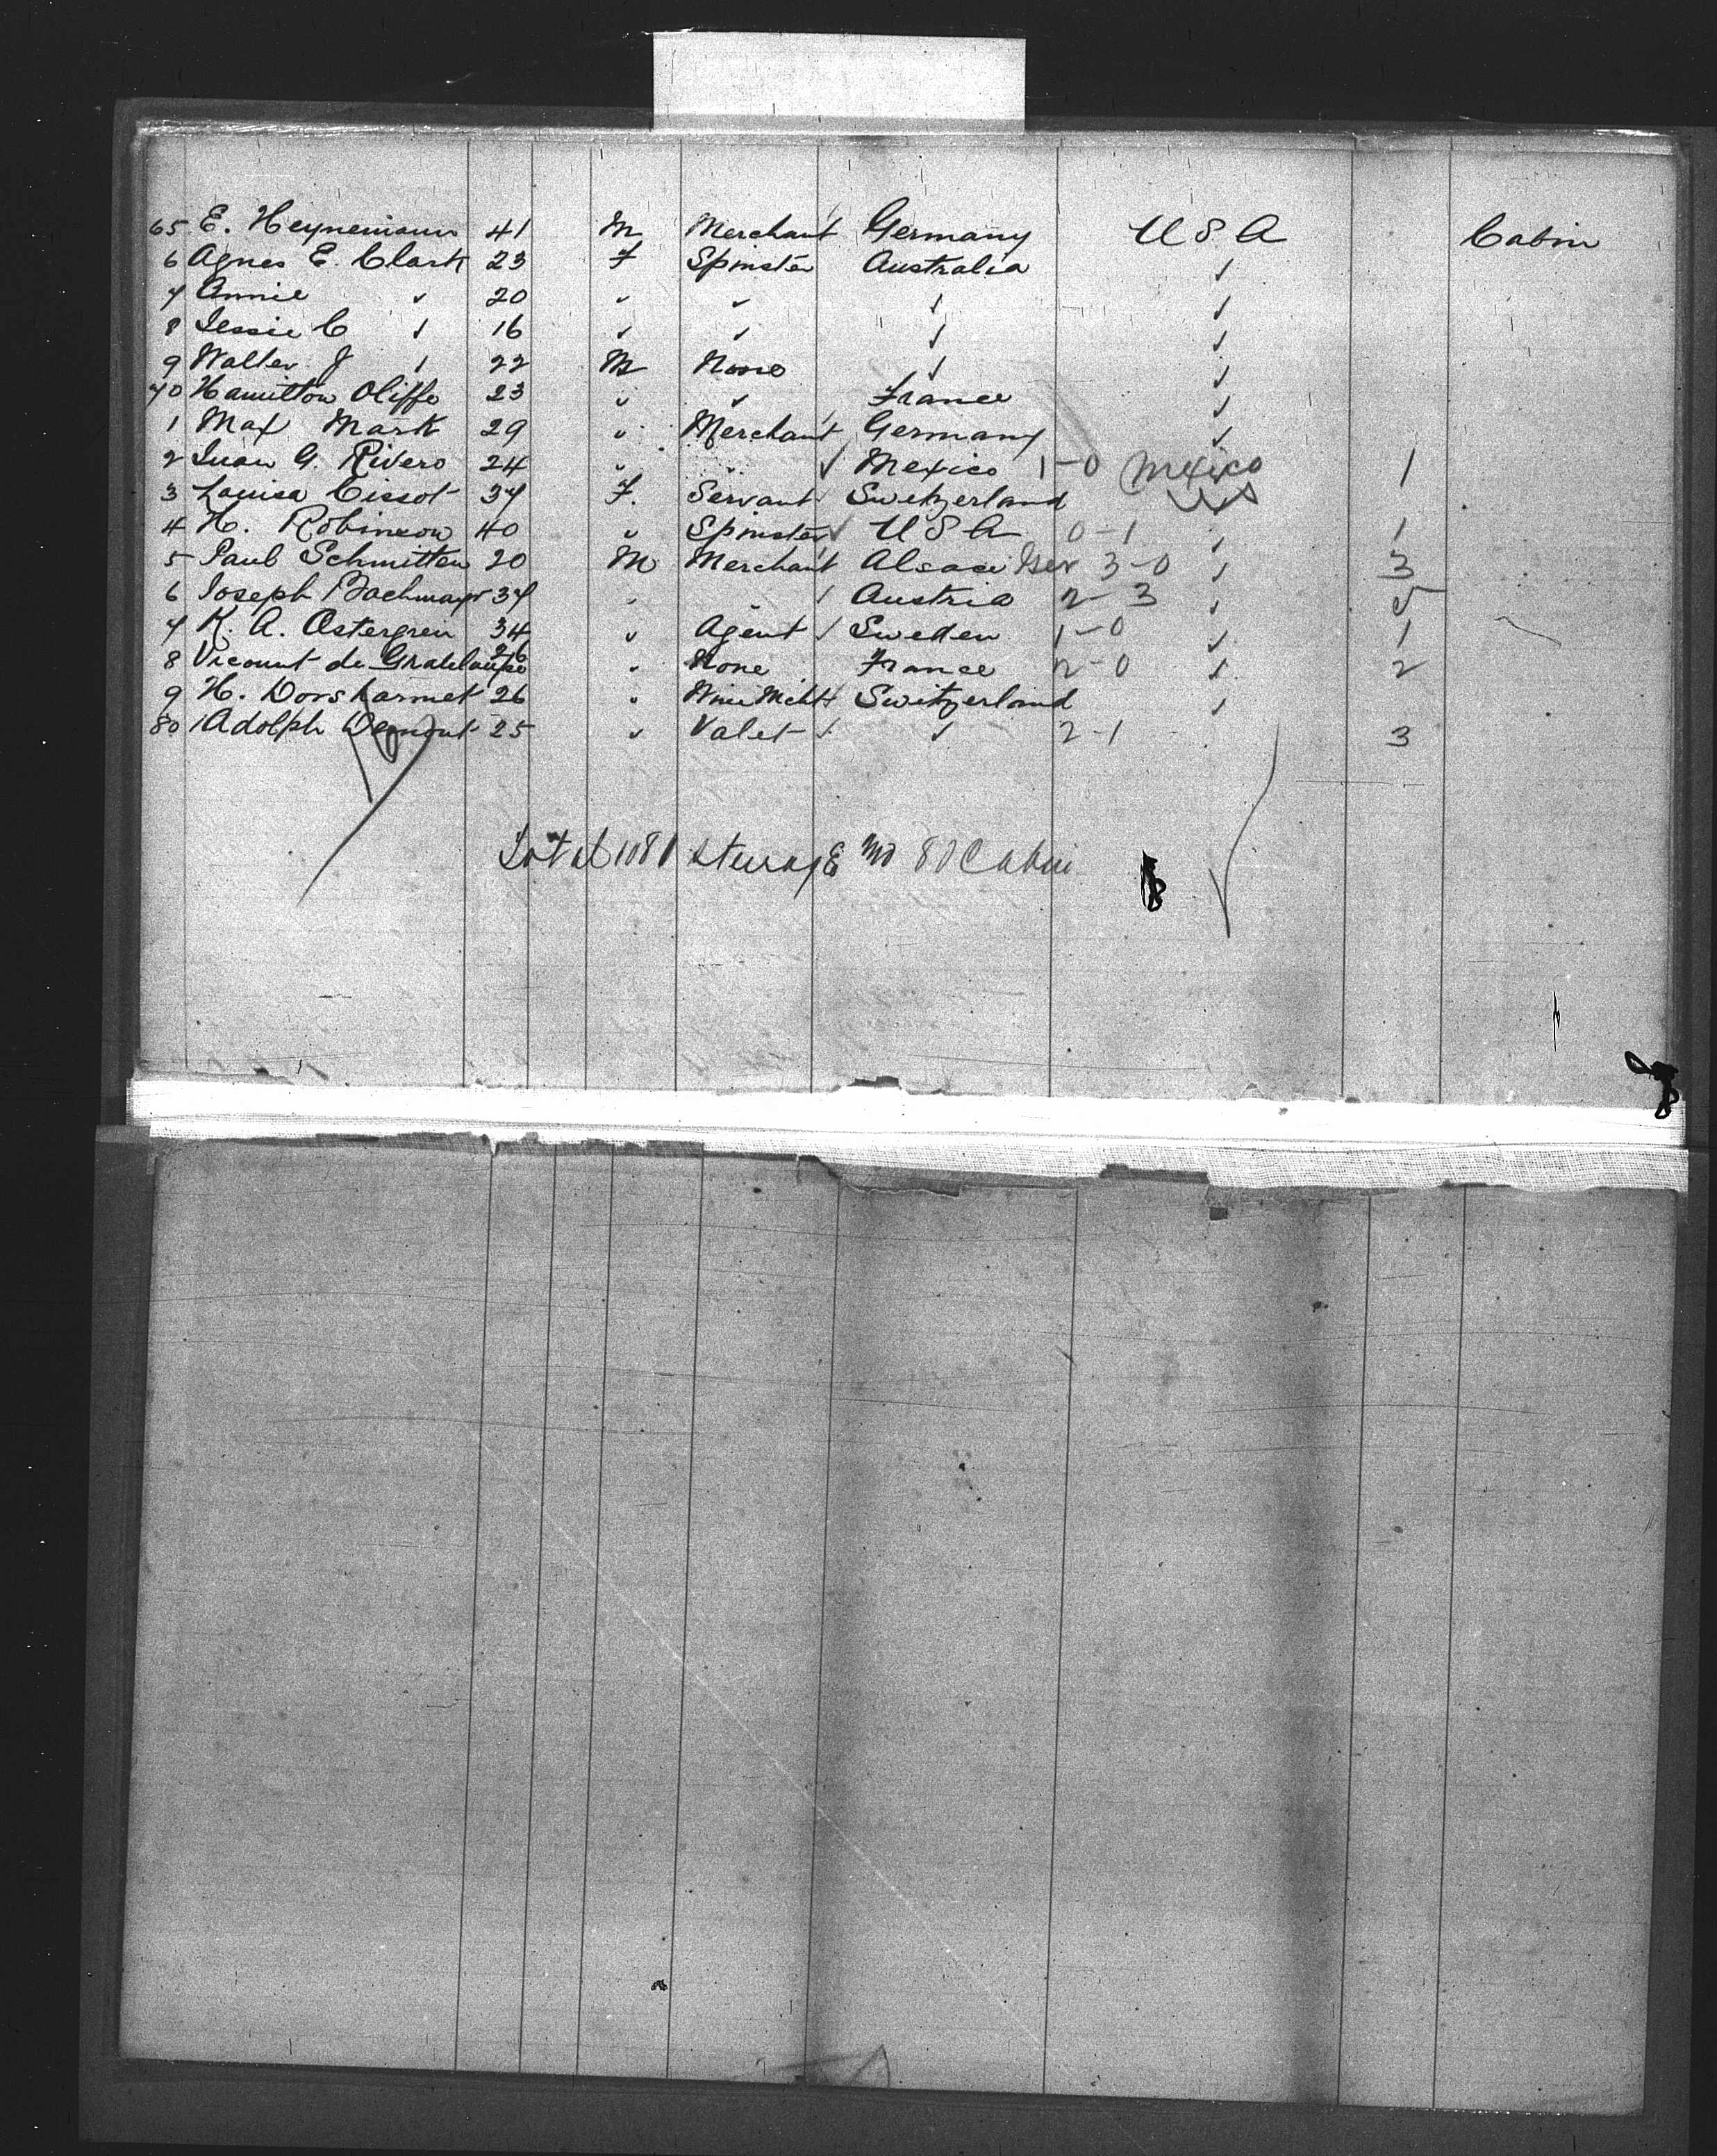 65 E. Heynemann 41 M Merchant Germany U S A Cabin
6 Agnes E. Clark 23 F Spinster Australia ✓
7 Annie ✓ 20 ✓ ✓ ✓ ✓
8 Jessie C ✓ 16 ✓ ✓ ✓ ✓
9 Walter J ✓ 22 M None ✓ ✓
70 Hamilton Oliffe 23 ✓ ✓ France ✓
1 Max Mark 29 ✓ Merchant Germany ✓
2 Juan G. Rivero 24 ✓ ✓ Mexico 1-0 Mexico 1
3 Louisa Cissot 37 F. Servant Switzerland ✓
4 H. Robinson 40 ✓ Spinster U S A 0-1 ✓ 1
5 Paul Schmitten 20 M Merchant Alsace Ger 3-0 ✓ 3
6 Joseph Bachmayr 37 Austria 2-3 ✓ 5
7 K. A. Ostergren 34 ✓ Agent Sweden 1-0 ✓ 1
8 Vicount de 26 ✓ None France 2-0 ✓ 2
9 H. 26 ✓ Wine Mcht Switzerland ✓
80 Adolph Demont 25 ✓ Valet ✓ 2-1 3
Total 1081 Steerage 80 Cabin